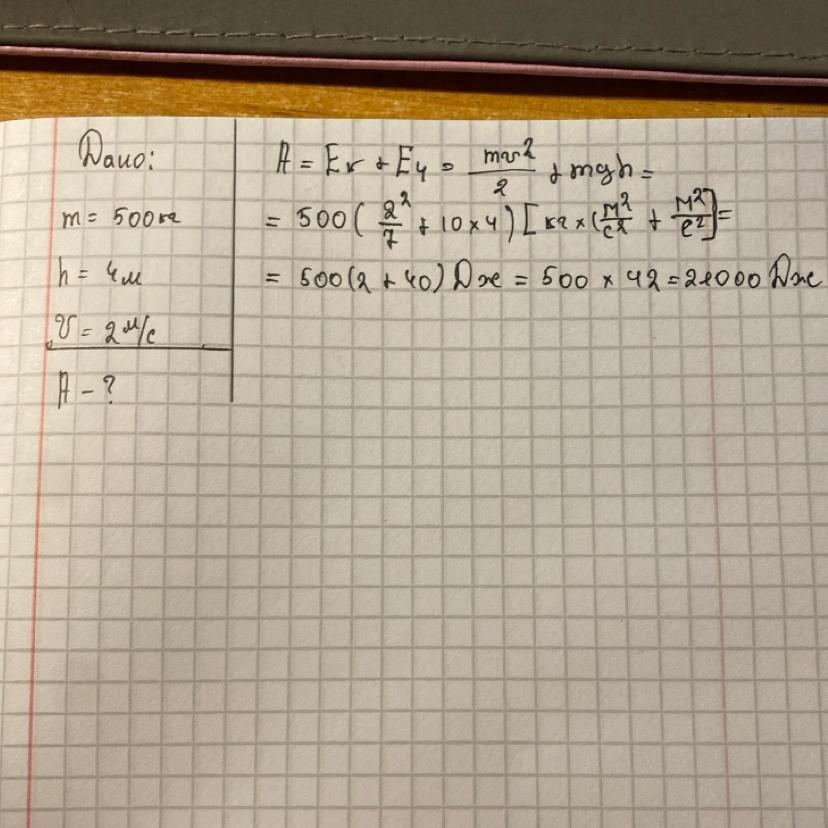 Дано:
m = 500 кг
h = 4 м
v = 2 м/с
A - ?
A = Eк + Eч = mv²/2 + mgh =
= 500 ( 2²/7 + 10 × 4 ) [ кг × ( м²/с² + м²/с² ] =
= 500 (2 + 40) Дж = 500 × 42 = 21000 Дж